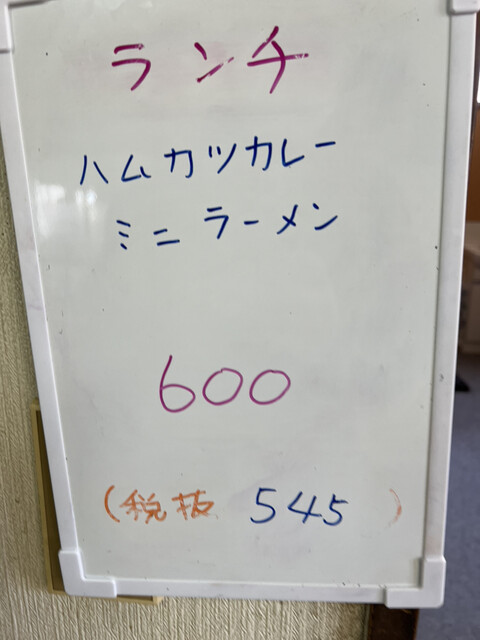 ランチ
ハムカツカレー
ミニラーメン
600
(税抜 545)